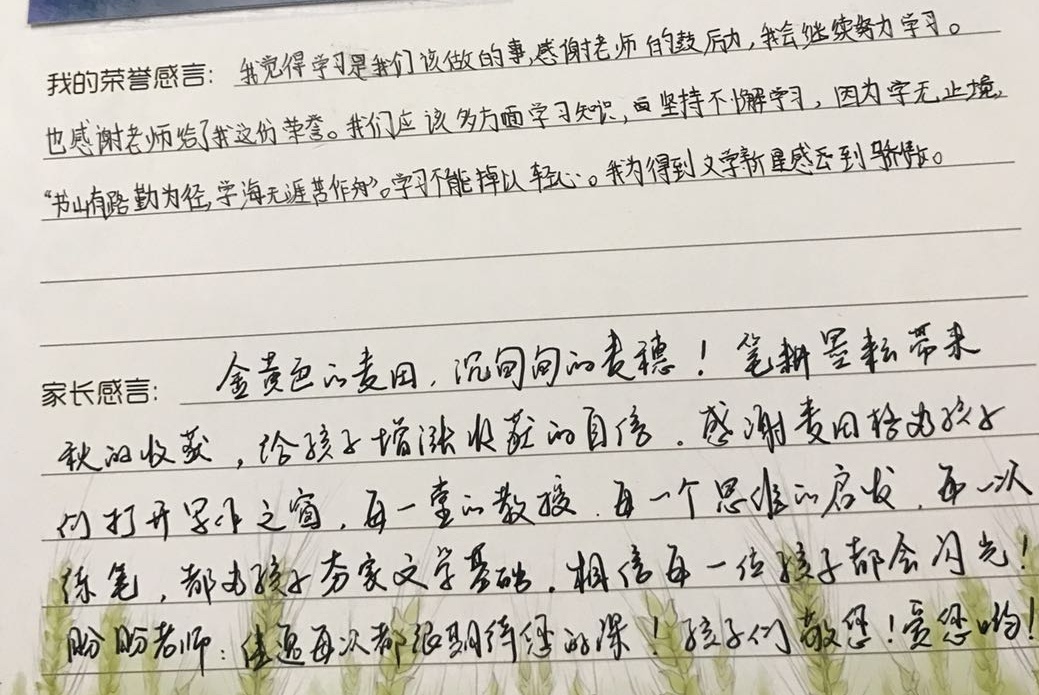 我的荣誉感言：我觉得学习是我们该做的事，感谢老师的鼓励，我会继续努力学习。
也感谢老师给了我这份荣誉。我们应该多方面学习知识，坚持不懈学习，因为学无止境，
“书山有路勤为径，学海无涯苦作舟”。学习不能掉以轻心。我为得到文学新星感到骄傲。
家长感言：金黄色的麦田，沉甸甸的麦穗！笔耕墨耘带来
秋的收获，给孩子增涨收获的自信。感谢麦田格为孩子
们打开写作之窗，每一堂的教授，每一个思维的启发，每一次
练笔，都为孩子夯家文学基础。相信每一位孩子都会闪光！
盼盼老师：每次都很期待您的课！孩子们敬您！爱您哟！